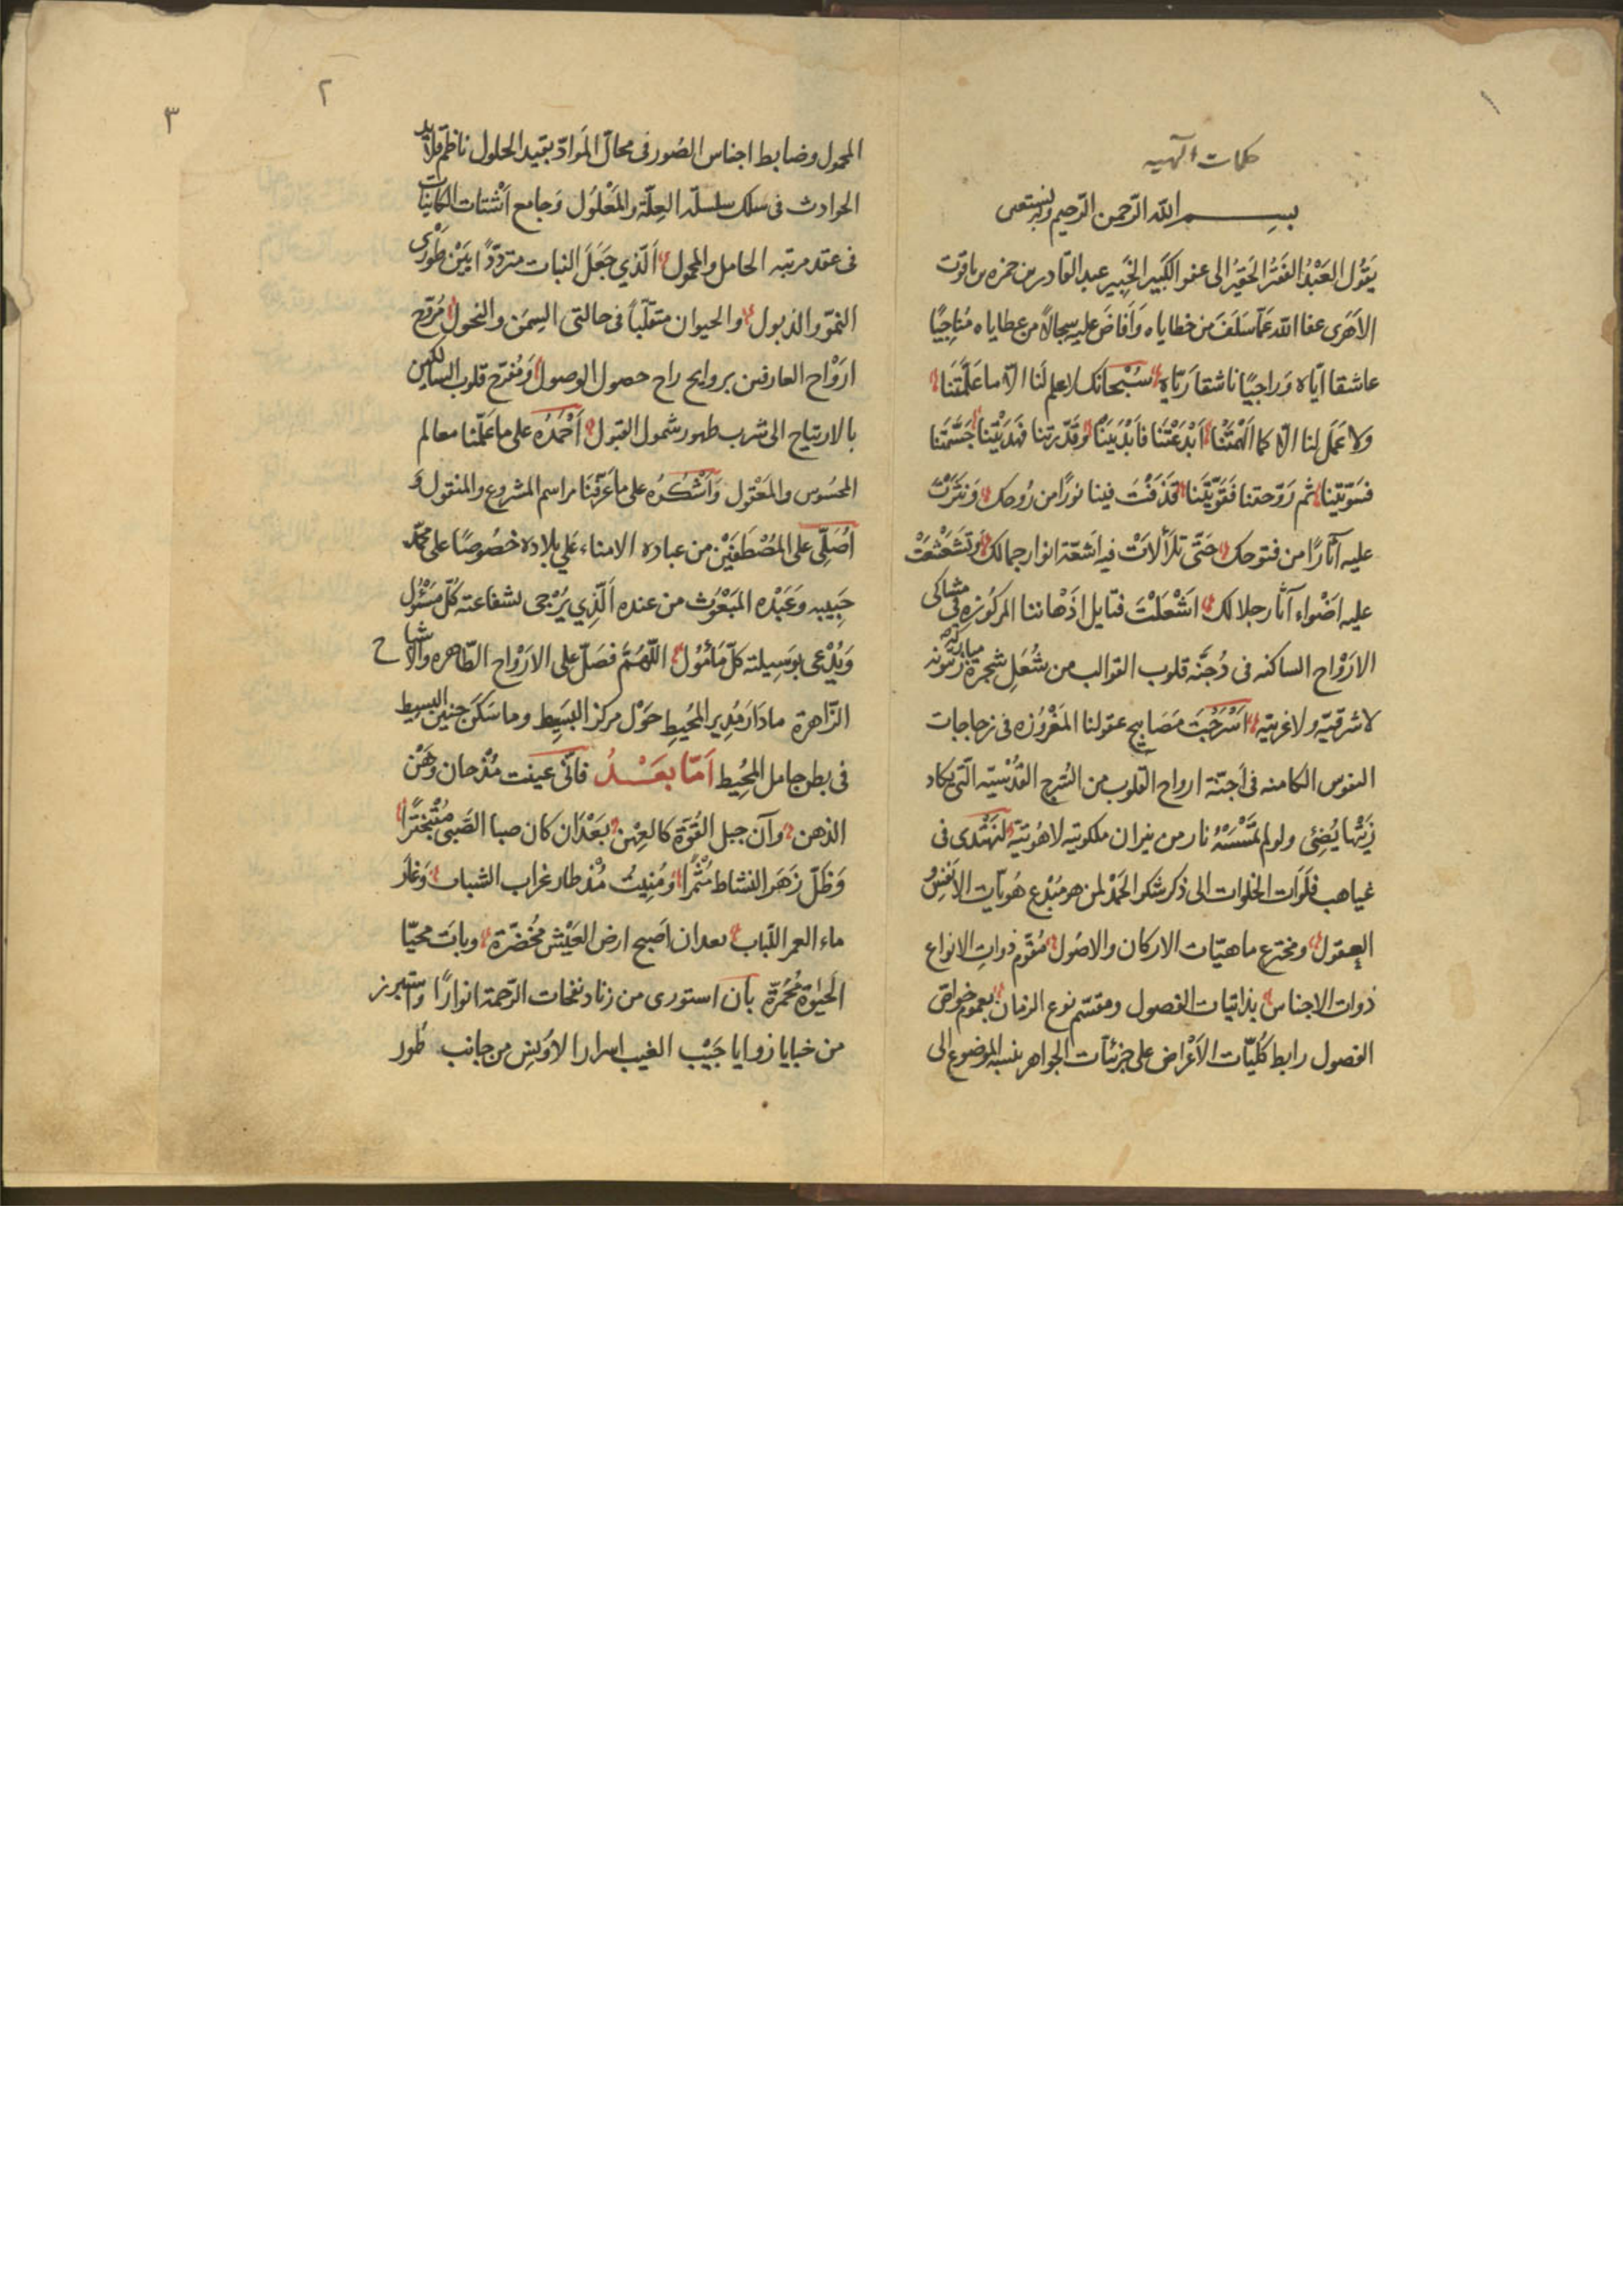 ١
حکمات الهیه
بسم الله الرحمن الرحیم وبه نستعین
يَقُول العَبْدُ الفَقيرُ الحَقيرُ الى عفو الكَبير الخَبِير عبد القادر بن حمزه بن ياقوت
الأَهَرى عفا الله عَمّا سَلَفَ من خطاياه وَأَفاضَ عليه سِجالاً من عطاياه مُناجِيًا
عاشقا ايّاه وَراجيًا ناشقا رَيّاه سُبْحانَك لا علم لَنا الّا ما عَلَّمتَنا
وَلا عَمَل لنا الّا كما اَلْهَمْتَنا اَبْدَعْتَنا فَأَبْدَيتَنا وقَدّرتنا فَهَدَيْتَنا جَسَّمتَنا
فسَوّيتَنا ثم رَوّحتنا فَقَوّيتَنا قَذَفْتَ فينا نورًا من رُوحك وَنَثَرْتَ
عليه آثارًا من فتوحك حَتّى تلَأْلأَتْ فيه اَشعّة انوار جمالك وَتَشَعْشَعَتْ
عليه اَضْواء آثار جلالك اَشْعَلْتَ فتايل اَذْهاننا المركُوزه فى مشاكى
الارْوَاح الساكنه فى دُجنَّه قلوب القوالب من شُعَلِ شجرة مباركة زيتونه
لا شرقيّه ولا غربيّه اَسْرَجْتَ مَصَابيح عقولنا المَغْرُوزه فى زجاجات
النفوس الكامنه فى اَجنّة ارواح القلوب من السُرج القُدْسيّه الّتى يكاد
زَيْتُها يُضِئ ولو لم تَمْسَسْهُ نار من نيران ملكوتيه لاهُوتيّة لنَهْتَدى فى
غياهب فَلَوَات الخلوات الى ذكر شكر الحَمْد لمن هو مُبْدع هُويّات الاَنْفس و
العقول ومخترع ماهيّات الاركان والاصُول مُقوّم ذوات الانواع
ذوات الاجناس بذاتيات الفصول ومقسّم نوع الزمان بعموم خواصّ
الفصول رابط كُليّات الاَعْراض على جزئيات الجواهر بنسبه الموضوع الى
٢
٣
المحمول وضابط اجناس الصُور فى محالّ المَوادّ بقيد الحلول ناظم قلائد
الحوادث فى سلك سلسلة العِلّة والمَعْلُول وَجامع اَشْتات الكائنات
فى عقد مرتبه الحامل والمحمول اَلّذي جَعَلَ النبات متردّدًا بَيْن طَوْرَى
النموّ والذبول والحيوان متقلّبًا فى حالتى السِمَن والنحول مُروّح
ارْوَاح العارفين بروايح راح حصول الوصول وَمُفرّح قلوب السالكين
بالارتياح الى شرب طهور شمول القبول اَحْمَدُه على ما عَلّمنا معالم
المحسُوس والمَعْقول وَاَشْكُرُه على ما عَرّفنا مراسم المشروع والمنقول وَ
اُصَلّى على المُصْطَفَيْن من عباده الامناء على بلاده خصُوصًا على محمّد
حَبِيبه وَعَبْده المَبْعُوث من عنده اَلّذِي يُرْجى بشفاعته كُلّ مَسْئُول
وَيُدْعى بوَسِيلته كلّ مَأمُول اللّهُمّ فصَلّ على الارْوَاح الطّاهره والاشباح
الزّاهرة ما دَار مُدِير المُحيطِ حَوْل مركز البسَيط وما سَكَن جنين البسيط
فى بطن حامل المُحِيط اَمّا بَعَـْـدُ فانّى عيفت مُذ حان وَهْن
الذهن وآن جبل القُوّة كالعِهْن بَعْدَ ان كان صبا الصَبى مُتَبَخترًا
وَظَلّ زَهَر النشاط مُثْمرًا وَمُنِيتُ مُذْ طار غراب الشباب وَغارَ
ماء العمر اللّباب بعد ان اَصبح ارض العَيْش مخُضرّة وبات محيّا
الحَيٰوة مُحْمَرّة بأن استورى من زناد نفحات الرّحمة انوارًا واستبرز
من خبايا زوايا جَيْب الغيب اسرارا لاونس من جانب طُور